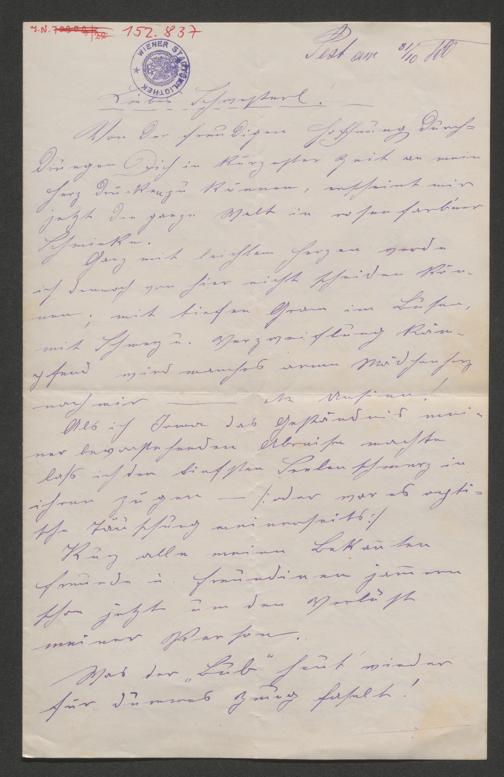 J.N. 152.837
WIENER STADTBIBLIOTHEK
Pest am 31/10
Liebes Schwesterl.
Von der freudigen Hoffnung durch-
drungen Dich in kürzester Zeit an mein
Herz drücken zu können, erscheint mir
jetzt die ganze Welt in rosenfarb'ner
Schminke.
Ganz mit leichtem Herzen werde
ich dennoch von hier nicht scheiden kön-
nen; mit tiefen Gram im Busen,
mit Schmerz u. Verzweiflung käm-
pfend wird manches arme Mädchenherz
nach mir — Adieu!
Als ich Irma das Geständnis mei-
ner bevorstehenden Abreise machte
las ich den tiefsten Seelenschmerz in
ihren Zügen — /: oder war es opti-
sche Täuschung meinerseits :/
Kurz alle meine Bekannten
Freunde u. Freundinen jammern
schon jetzt um den Verlust
meiner Person.
Was der „Bub" heut' wieder
für dummes Zeug faselt!